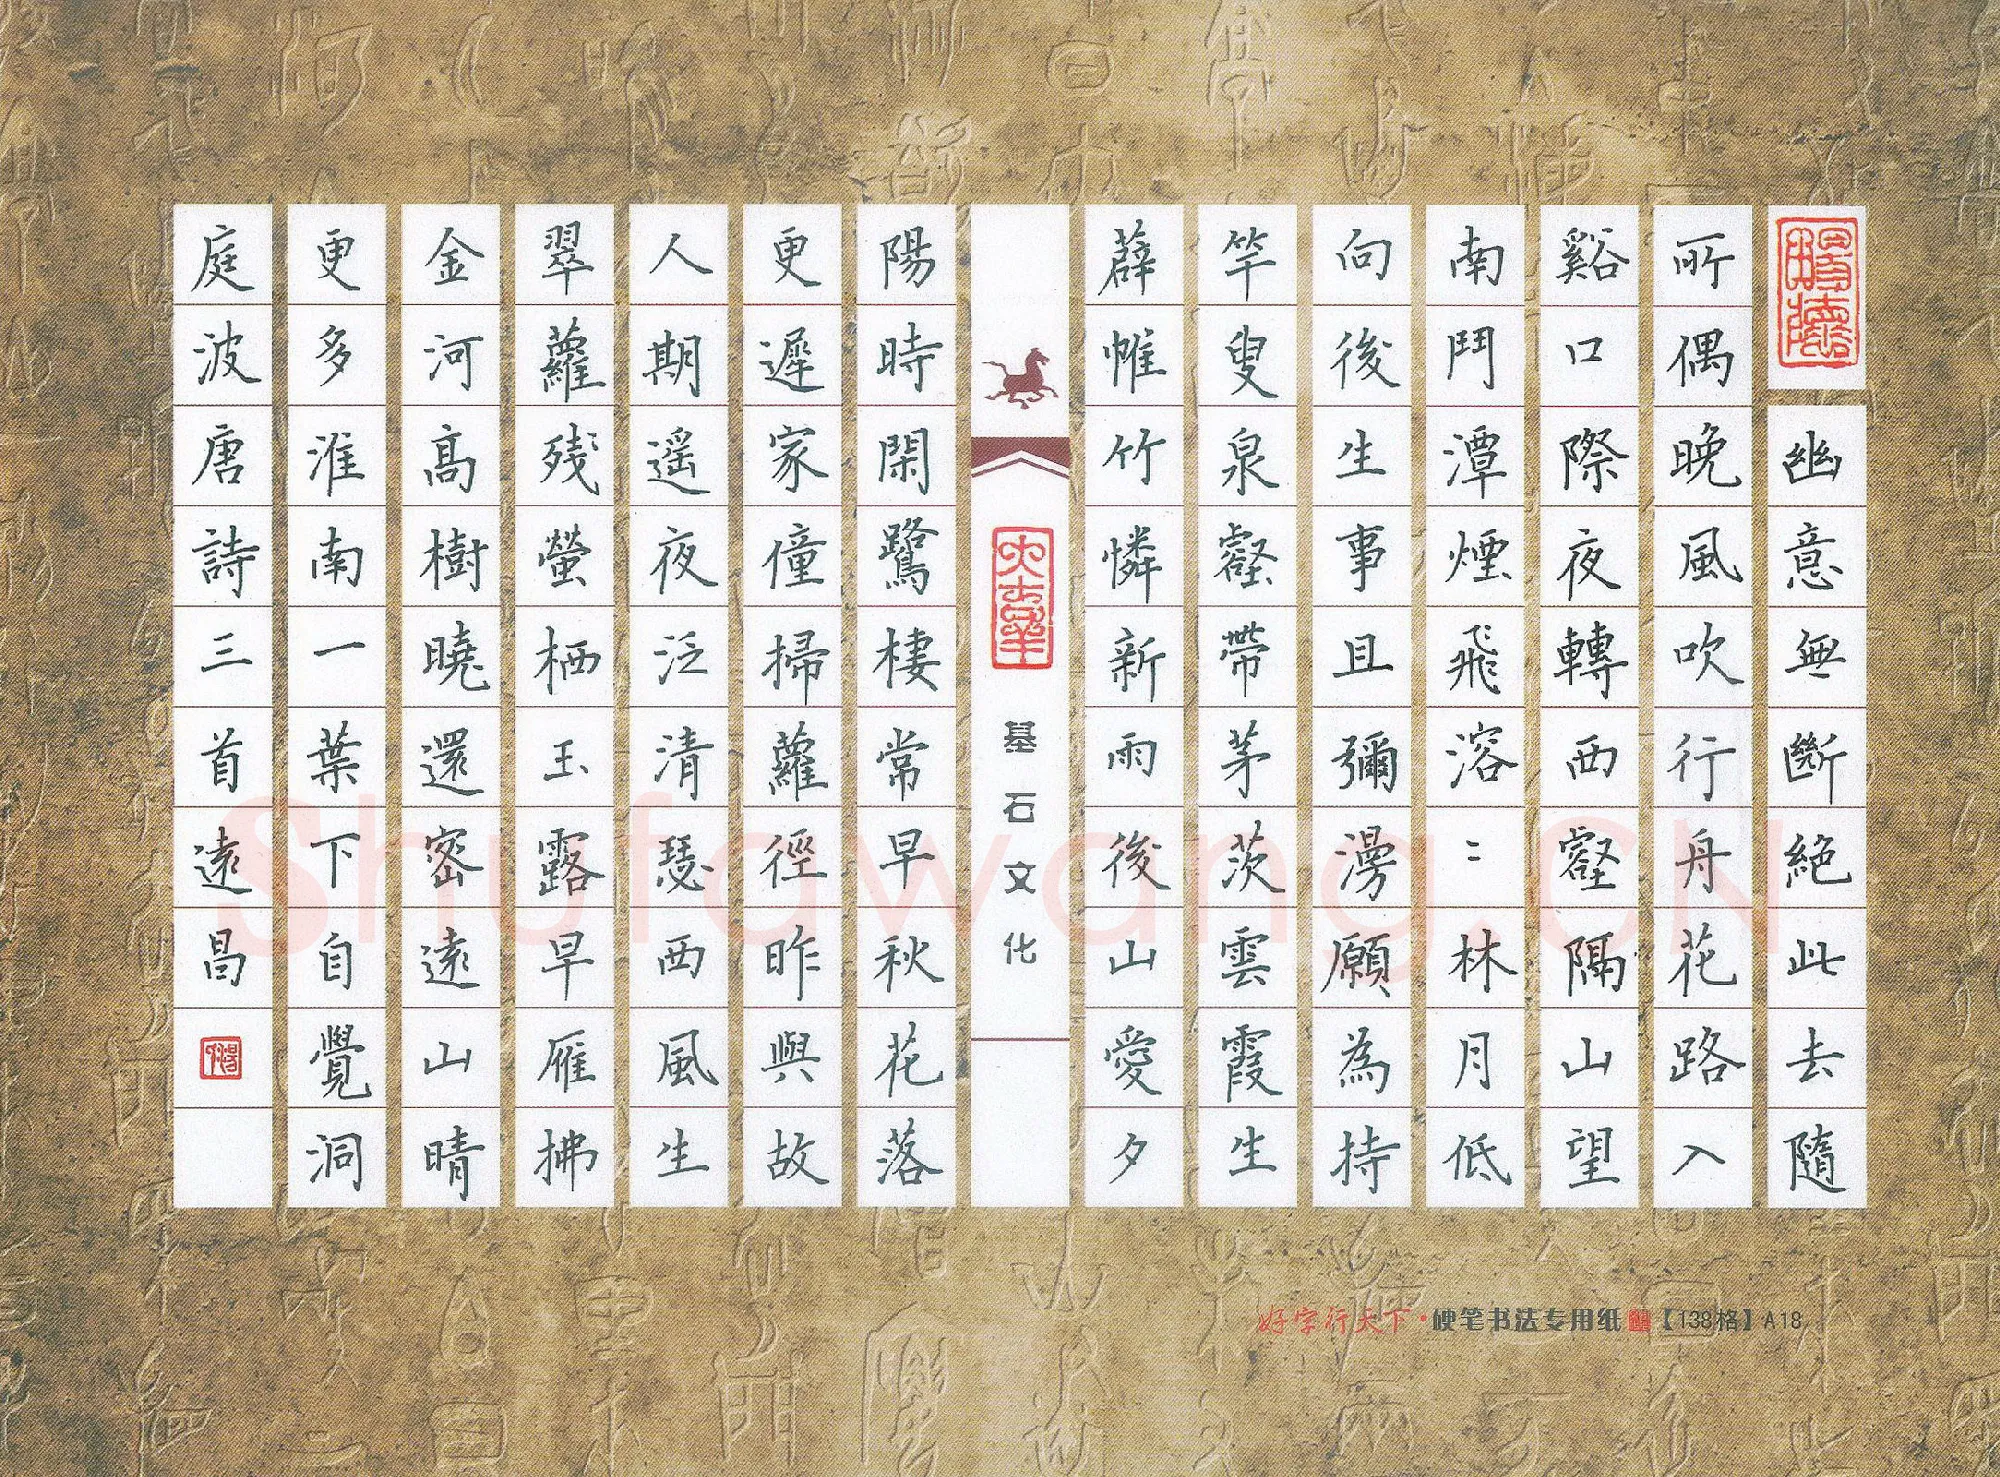 幽意無斷絕此去隨
所偶晚風吹行舟花路入
谿口際夜轉西壑隔山望
南鬥潭煙飛溶〻林月低
向後生事且彌漫願為持
竿叟泉壑帶茅茨雲霞生
薜帷竹憐新雨後山愛夕
基石文化
陽時閑鷺棲常早秋花落
更遲家僮掃蘿徑昨與故
人期遥夜泛清瑟西風生
翠蘿残螢栖玉露早雁拂
金河高樹曉還密遠山晴
更多淮南一葉下自覺洞
庭波唐詩三首遠昌
好字行天下·硬笔书法专用纸【138格】A18
Shufawang.CN